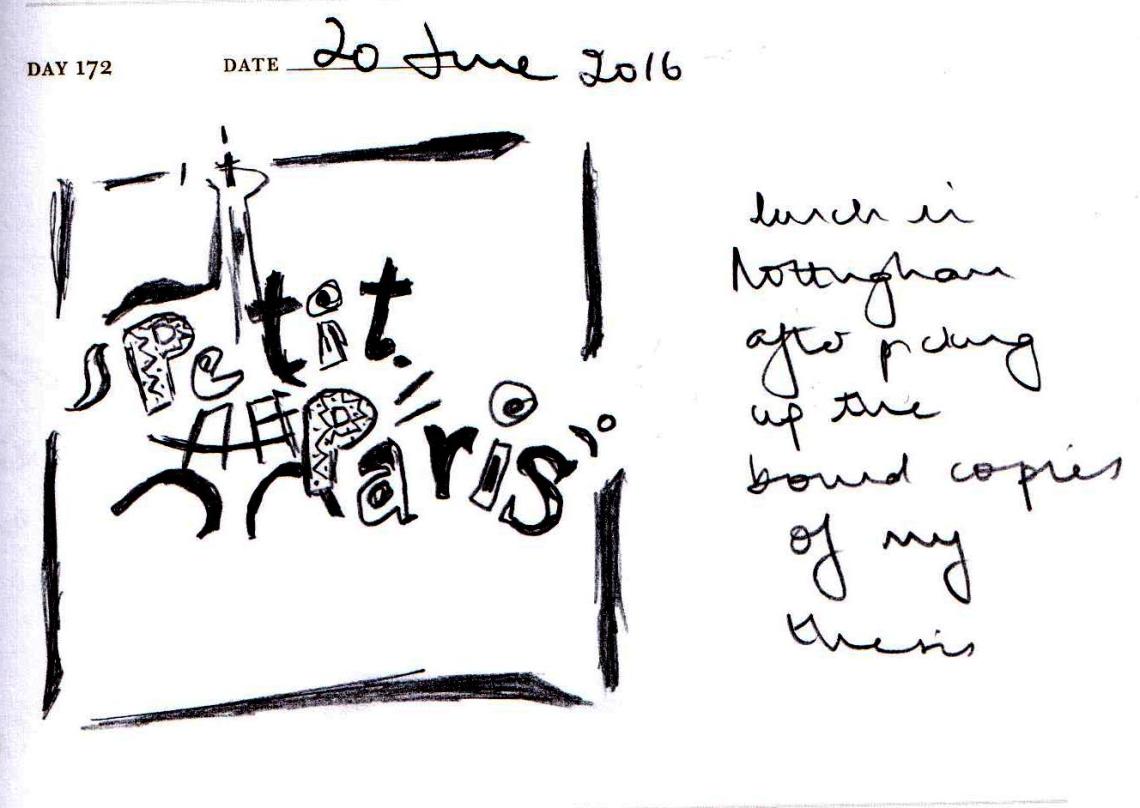 DAY 172 DATE 20 June 2016
Petit
Paris
lunch in
Nottingham
after picking
up the
bound copies
of my
thesis